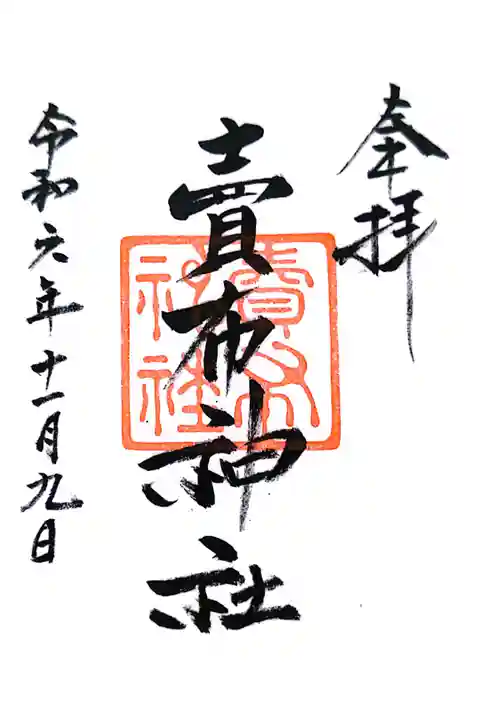 奉拝
賣布神社
賣布
神社
令和六年十一月九日